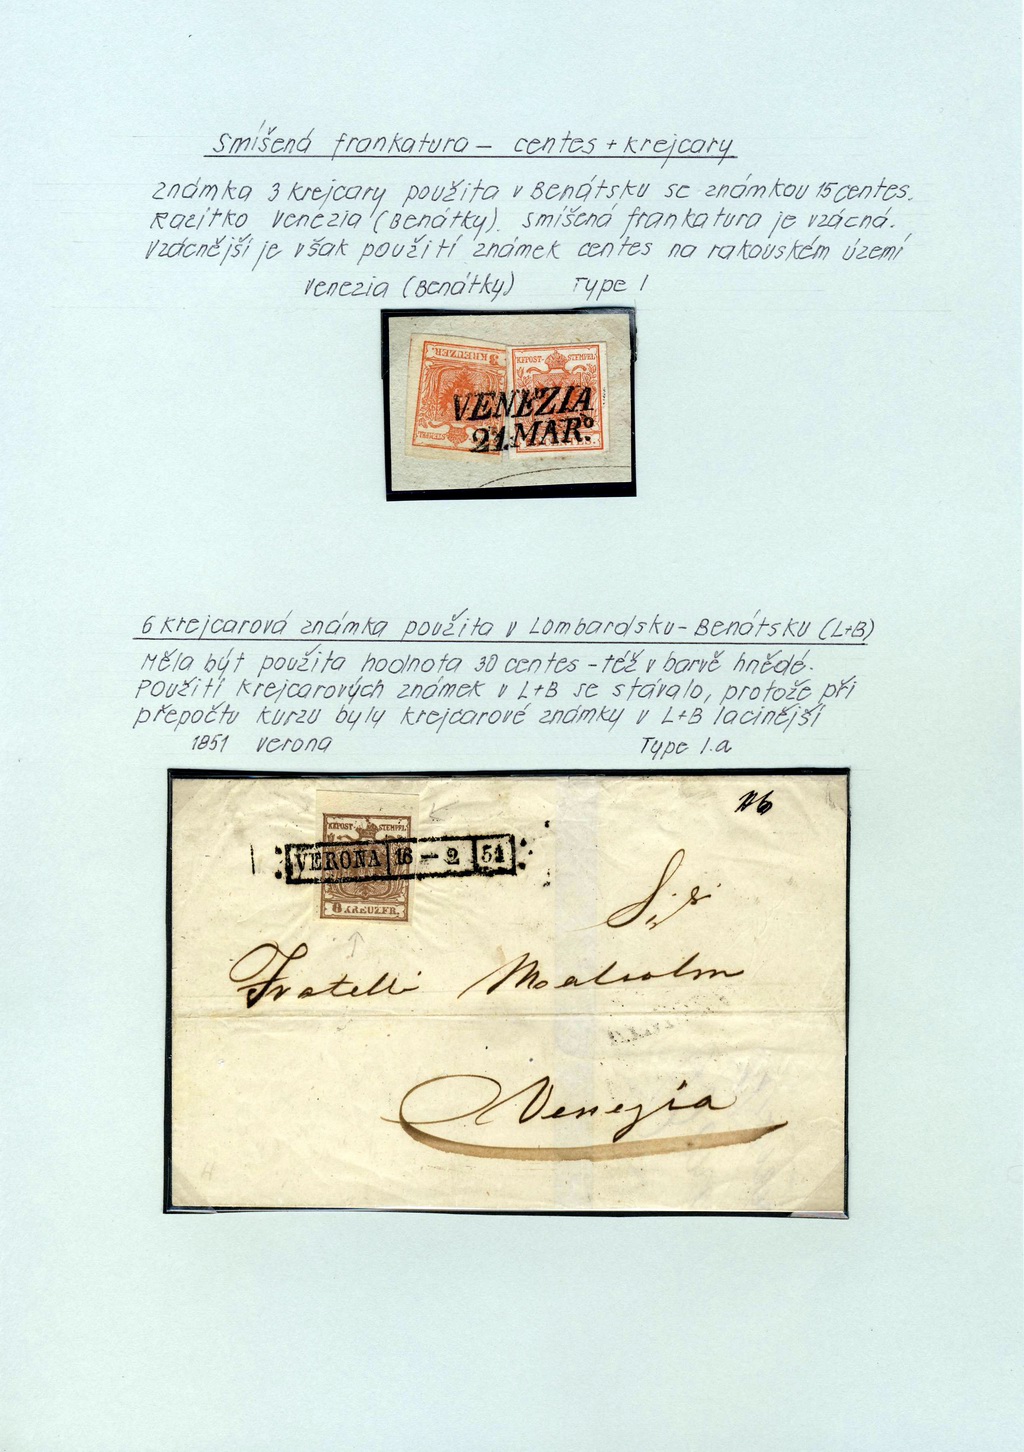 Smíšená frankatura – centes + krejcary
známka 3 krejcary použita v Benátsku se známkou 15 centes.
Razítko Venezia (Benátky). Smíšená frankatura je vzácná.
Vzácnější je však použití známek centes na rakouském území
Venezia (Benátky) Type I
3 KREUZER.
KKPOST-STEMPEL
VENEZIA
21. MAR:º
CENTES.
6 krejcarová známka použita v Lombardsku-Benátsku (L+B)
Měla být použita hodnota 30 centes - též v barvě hnědé.
Použití krejcarových známek v L+B se stávalo, protože při
přepočtu kurzu byly krejcarové známky v L+B lacinější
1851 Verona Type I.a
KKPOST-STEMPEL
VERONA 16 – 2 51
6 KREUZER.
Fratelli Malcolm
Venezia